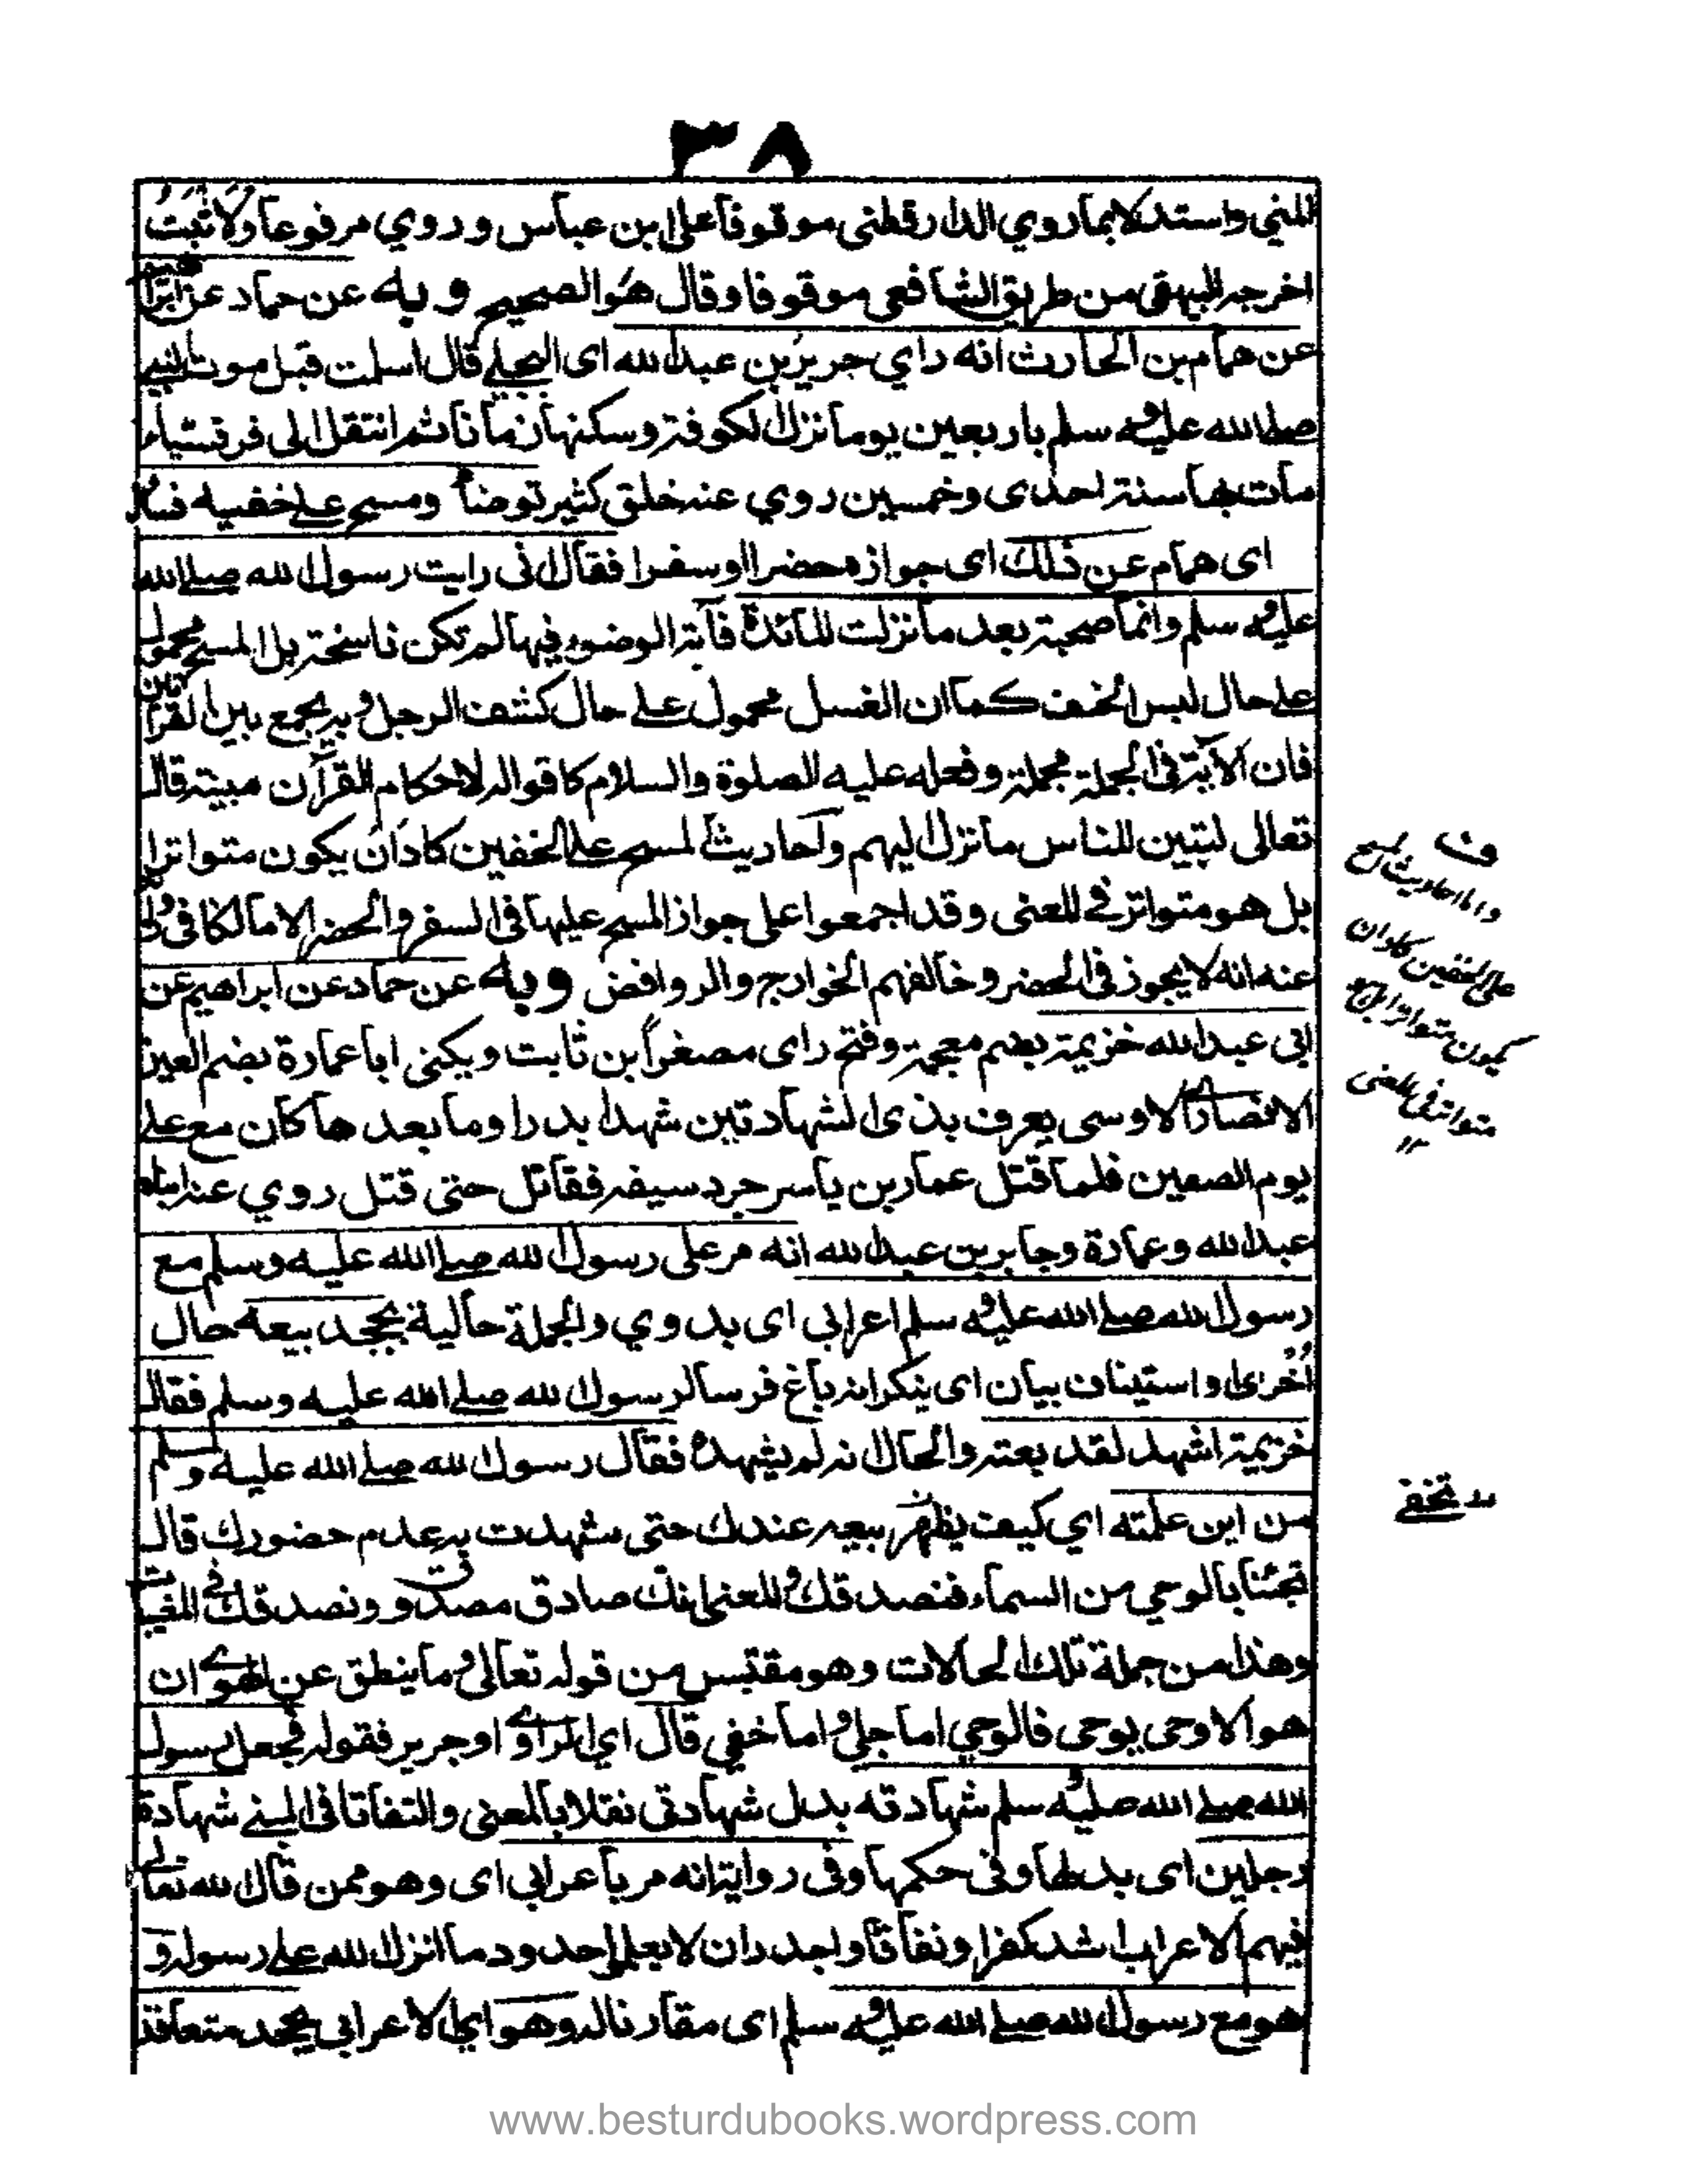 ٣٨
المني واستدلا بما روي الدارقطنى موقوفا على ابن عباس وروي مرفوعا ولا ثبت
اخرجه البيهقى من طريق الشافعى موقوفا وقال هو الصحيح وبه عن حماد عن ابراهيم
عن همام بن الحارث انه راي جرير بن عبد الله اى البجلي قال اسلمت قبل موت النبي
صلى الله عليه وسلم باربعين يوما نزل الكوفة وسكنها زمانا ثم انتقل الى قرقيسياء
مات بها سنة احدى وخمسين روي عنه خلق كثير توضأ ومسح على خفيه فسأله
اى همام عن ذلك اى جوازه حضرا او سفرا فقال انى رايت رسول الله صلى الله
عليه وسلم وانما صحبته بعد ما نزلت المائدة فآية الوضوء فيها لم تكن ناسخة بل المسح محمول
على حال لبس الخف كما ان الغسل محمول على حال كشف الرجل وبه يجمع بين القرأتين
فان الآية فى الجملة مجملة وفعله عليه الصلوة والسلام كاقواله لاحكام القرآن مبينة قال
تعالى لتبين للناس ما نزل اليهم واحاديث المسح على الخفين كاد ان يكون متواترا
بل هو متواتر في المعنى وقد اجمعوا على جواز المسح عليها فى السفر والحضر الا مالكا فى رواية
عنه انه لا يجوز فى الحضر وخالفهم الخوارج والروافض وبه عن حماد عن ابراهيم عن
ابى عبد الله خزيمة بضم معجمة وفتح راى مصغرا بن ثابت ويكنى ابا عمارة بضم العين
الانصاري الاوسى يعرف بذى الشهادتين شهد بدرا وما بعدها كان مع على
يوم الصفين فلما قتل عمار بن ياسر جرد سيفه فقاتل حتى قتل روي عنه ابناه
عبد الله وعمارة وجابر بن عبد الله انه مر على رسول الله صلى الله عليه وسلم مع
رسول الله صلى الله عليه وسلم اعرابى اى بدوي والجملة حالية يجحد بيعه حال
أخرى او استيناف بيان اى ينكر انه باغ فرسا لرسول الله صلى الله عليه وسلم فقال
خزيمة اشهد لقد بعته والحال انه لم يشهده فقال رسول الله صلى الله عليه وسلم
من اين علمته اي كيف يظهر بيعه عندك حتى شهدت به عدم حضورك قال
تجئنا بالوحي من السماء فنصدقك والمعنى انك صادق مصدوق ونصدقك في المغيبات
وهذا من جملة تلك الحالات وهو مقتبس من قوله تعالى وما ينطق عن الهوى ان
هو الا وحى يوحى فالوحي اما جلي واما خفي قال اي الراوي او جرير فقوله فجعل رسول
الله صلى الله عليه وسلم شهادته بدل شهادتى نقلا بالمعنى والتفاتا فى المبنى شهادة
رجلين اى بدلها وفى حكمها وفى رواية انه مر باعرابى اى وهو ممن قال الله تعالى
فيهم الاعراب اشد كفرا ونفاقا واجدر ان لا يعلموا حدود ما انزل الله على رسوله و
هو مع رسول الله صلى الله عليه وسلم اى مقارنا له وهو اي الاعرابى يجحد
ف
واما احاديث المسح
على الخفين كاد ان
يكون متواترا بل هو
متواتر فى المعنى
تخفى
www.besturdubooks.wordpress.com